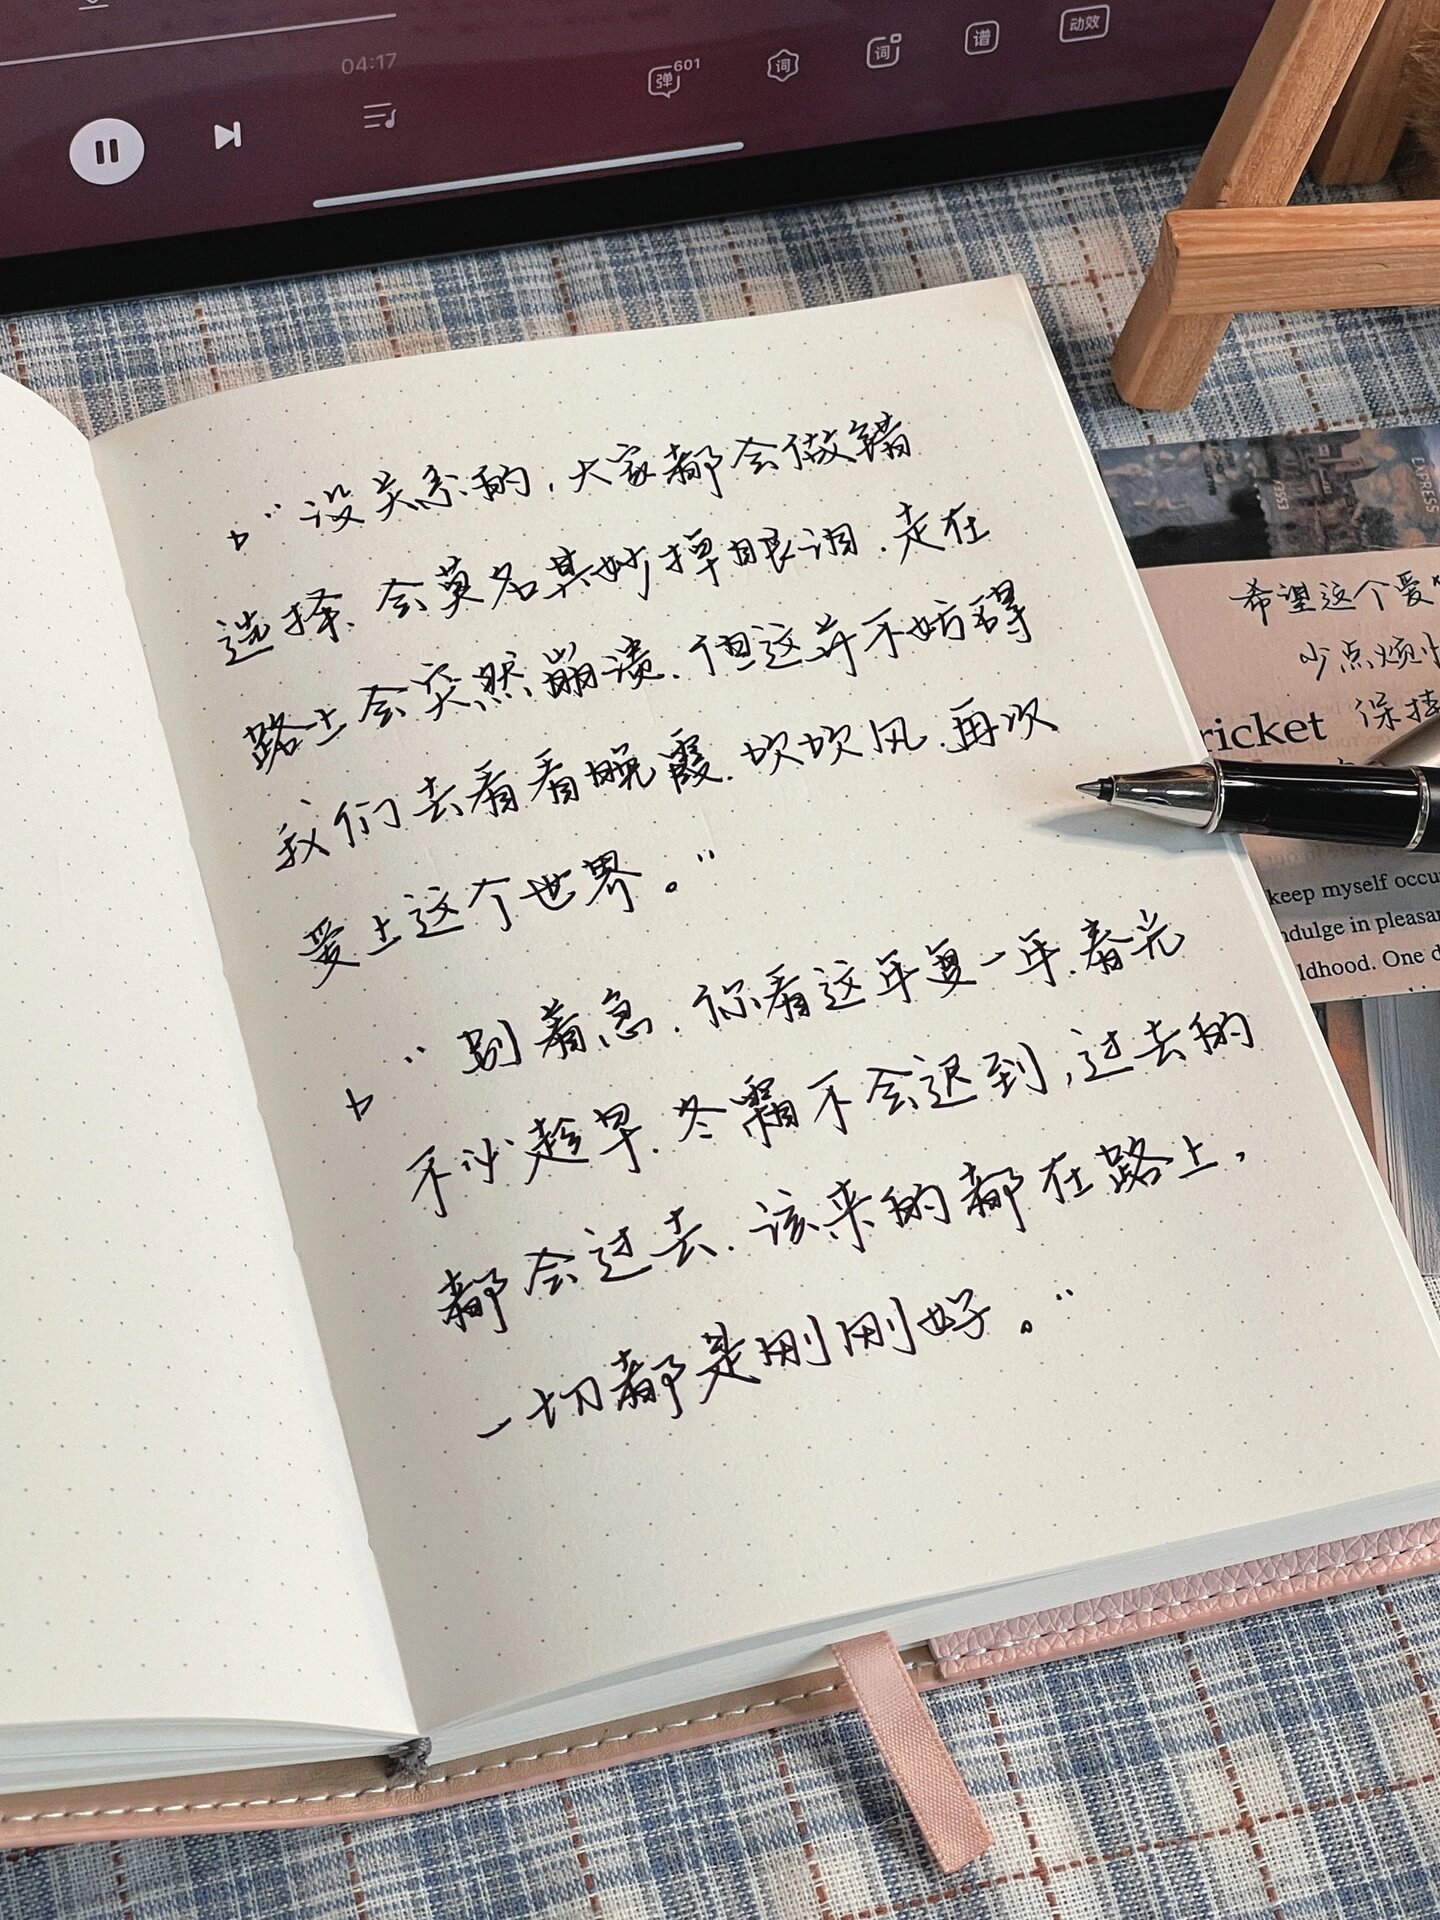 04:17
弹 601
词
词
谱
动效
“没关系的,大家都会做错
选择、会莫名其妙掉眼泪.走在
路上会突然崩溃.但这并不妨碍
我们去看看晚霞.吹吹风.再次
爱上这个世界。”
“别着急.你看这年复一年.春光
不必趁早.冬霜不会迟到,过去的
都会过去.该来的都在路上,
一切都是刚刚好。”
EXPRESS
希望这个爱
少点烦
ricket 保持
keep myself occu
ndulge in pleasa
ldhood. One d